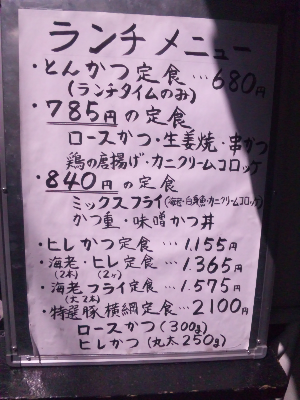 ランチメニュー
・とんかつ定食…680円
(ランチタイムのみ)
・785円の定食
ロースかつ・生姜焼・串かつ
鶏の唐揚げ・カニクリームコロッケ
・840円の定食
ミックスフライ(海老・白身魚・カニクリームコロッケ)
かつ重・味噌かつ丼
・ヒレかつ定食…1.155円
・海老・ヒレ定食…1.365円
(2本) (2ヶ)
・海老フライ定食…1.575円
(大2本)
・特選豚横綱定食…2100円
ロースかつ(300g)
ヒレかつ(丸太250g)